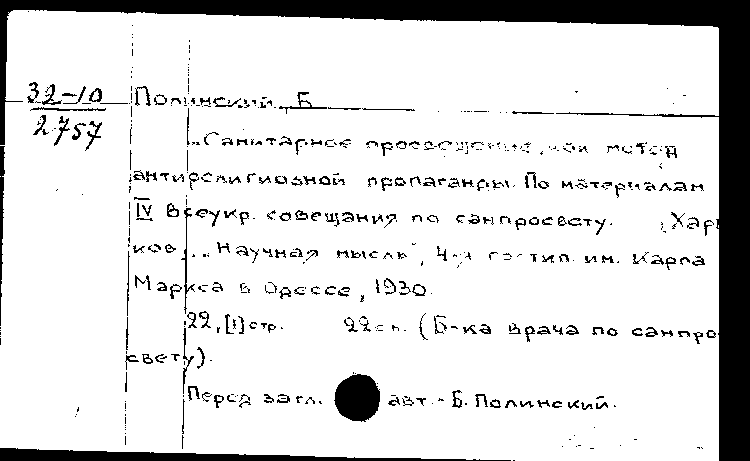 32-10 Полинский, Б
2757
„Санитарное просвещение, как метод
антирелигиозной пропаганды. По материалам
IV Всеукр. совещания по санпросвету. Харь
ков, „Научная мысль", 4-я гостип. им. Карла
Маркса в Одессе, 1930.
22, [1] стр. 22 см. (Б-ка врача по санпро-
свету).
Перед загл. авт. - Б. Полинский.